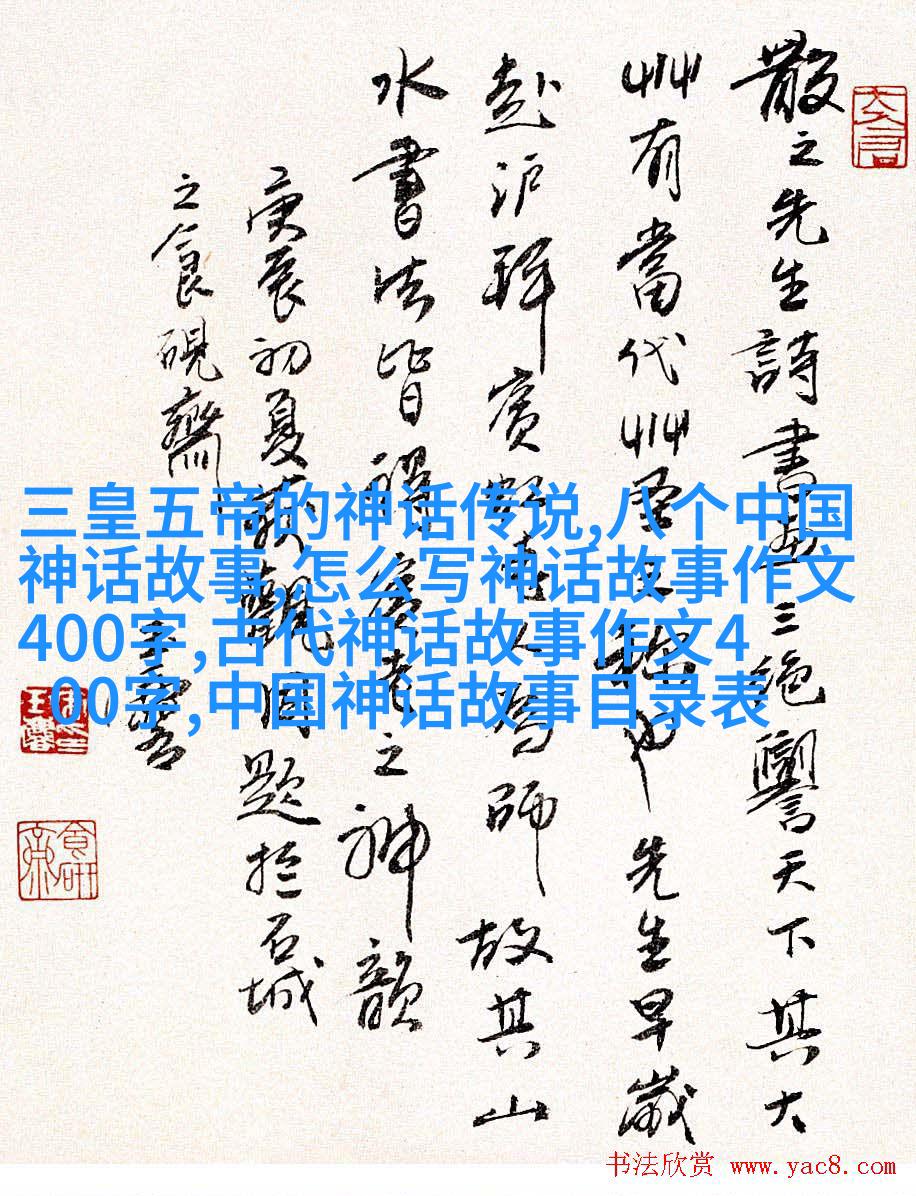 散之先生詩書畫三絕譽天下其大
艸有當代艸聖之稱也先生早歲
赴沪拜賓虹老人為師故其山
水書法皆得賓老之神韻
庚辰初夏獲觀因題於石城
之食硯齋
三皇五帝的神话传说,八个中国
神话故事,怎么写神话故事作文
400字,古代神话故事作文4
00字,中国神话故事目录表
书法欣赏 www.yac8.com